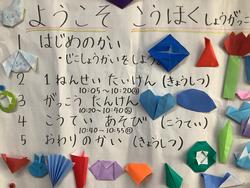 ようこそ こうほくしょうがっ
1 はじめのかい
・じこしょうかいをしよう
2 1ねんせい たいけん (きょうしつ)
10:05～10:20
3 がっこう たんけん
10:20～10:40
4 こうてい あそび (こうてい)
10:40～10:55
5 おわりのかい (きょうしつ)